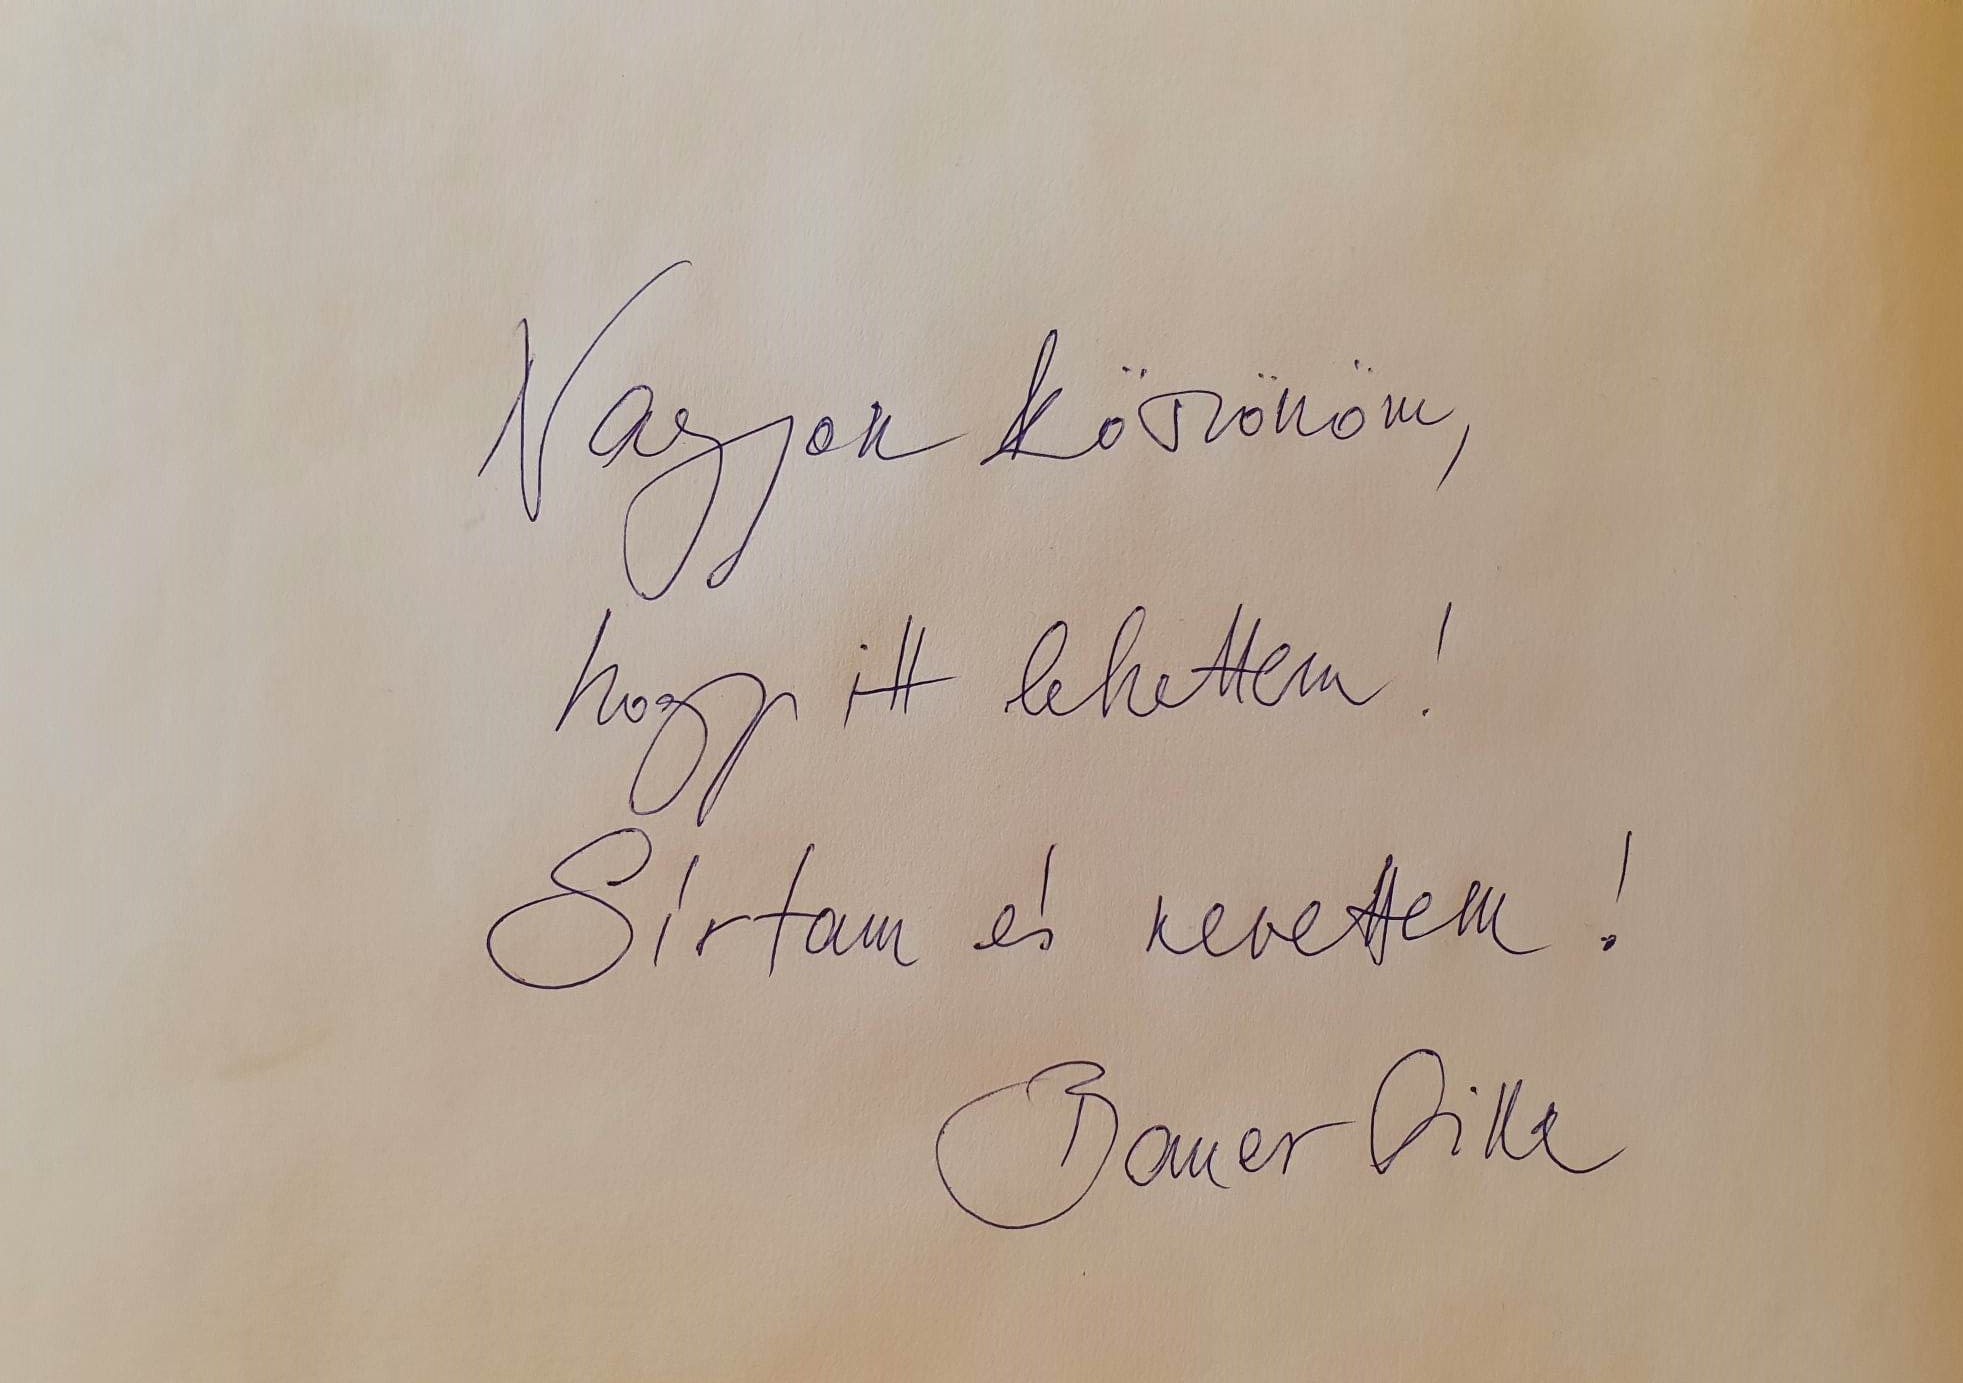 Nagyon köszönöm,
hogy itt lehettem!
Sírtam és nevettem!
Bauer